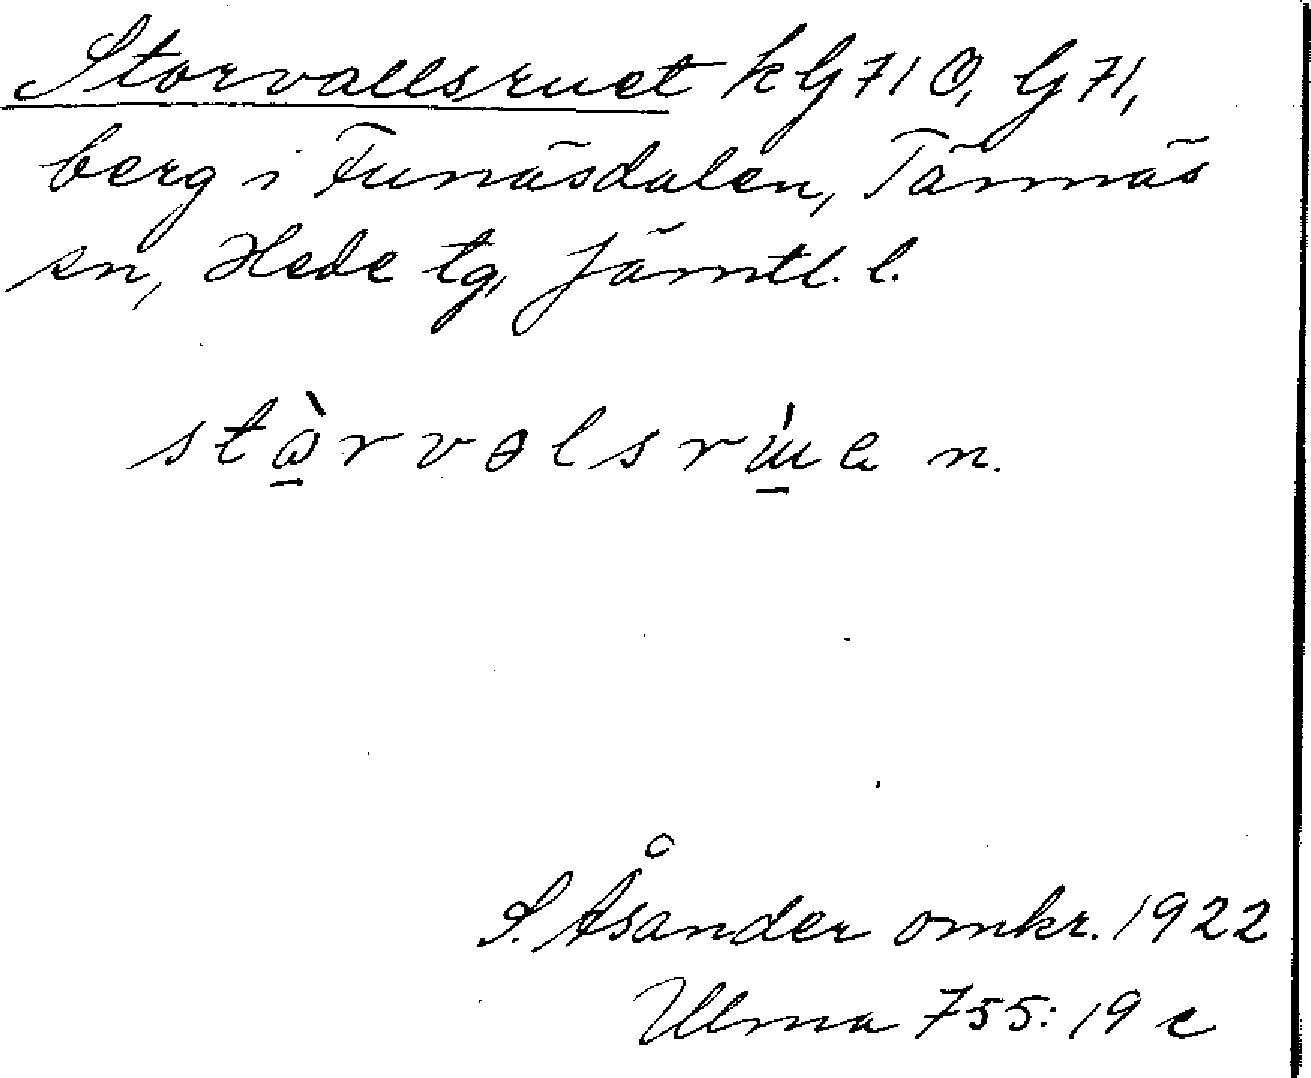 Storvallsruet k G71 O, G71,
berg i Funäsdalen, Tännäs
sn, Hede tg, Jämtl. l.
n.
S. Åsander omkr. 1922
Ulma 755:19 c